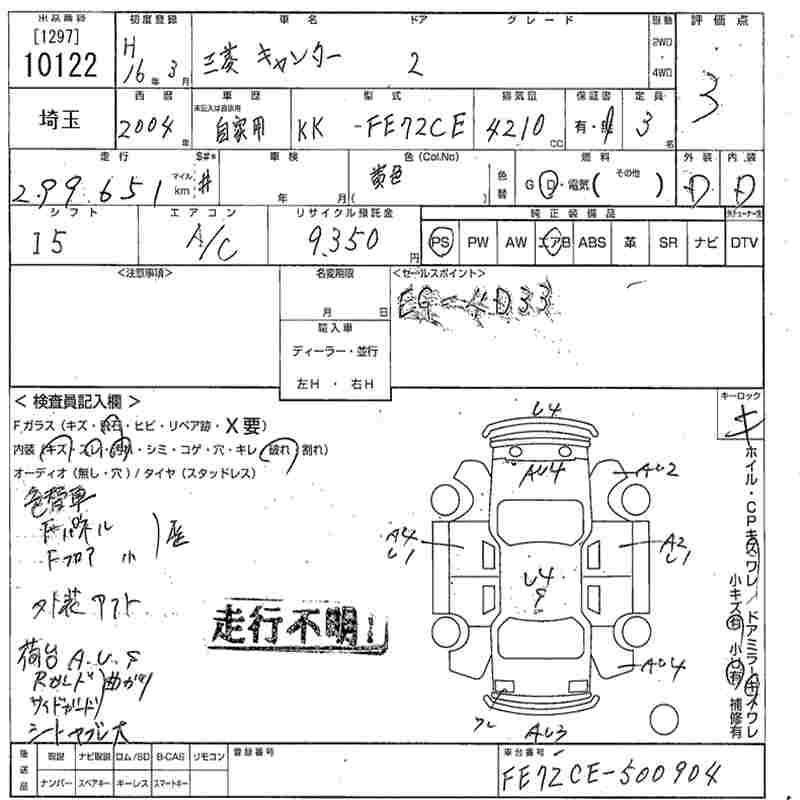 出品番号 初度登録 車名 ドア グレード 駆動 評価点
[1297] H 2WD
10122 16年 3月 三菱 キャンター 2 4WD 3
西暦 車歴 型式 排気量 保証書 定員
埼玉 未記入は自家用
2004年 自家用 KK -FE72CE 4210cc 有・無 3名
走行 $#* 車検 色(Col.No) 燃料 外装 内装
299.651 マイル km # 年 月( ) 黄色 色替 G D・電気( その他 ) D D
シフト エアコン リサイクル預託金 純正装備品
I5 A/C 9,350円 PS PW AW エアB ABS 革 SR ナビ DTV
<注意事項> 名変期限 <セールスポイント>
月 日
輸入車
ディーラー・並行
左H・右H
<検査員記入欄> キーロック
Fガラス(キズ・飛石・ヒビ・リペア跡・X要) キ
内装(キズ・スレ・汚れ・シミ・コゲ・穴・キレ・破れ・割れ)
オーディオ(無し・穴)/タイヤ(スタッドレス)
色替車
Fパネル
Fフロア 小
歴
外装 アフト
走行不明!
荷台 A.U.S
Rガード 曲がり
サイドガード
シートヤブレ大
U4
AU4 AU2
A4 U1 A2 U1
U4 S
AU4
AU3
ホイル・CPキズワレ/ドアミラーキズワレ
小キズ有 小U有 補修有
後送品 取説 ナビ取説 ロム/SD B-CAS リモコン 登録番号 車台番号
ナンバー スペアキー キーレス スマートキー FE72CE-500904